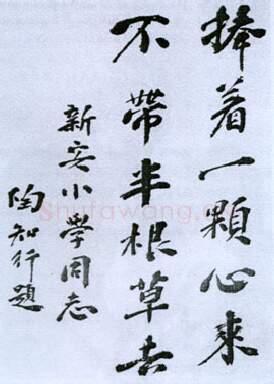 捧着一顆心来
不帶半根草去
新安小学同志
陶知行題
Shufawang.cn